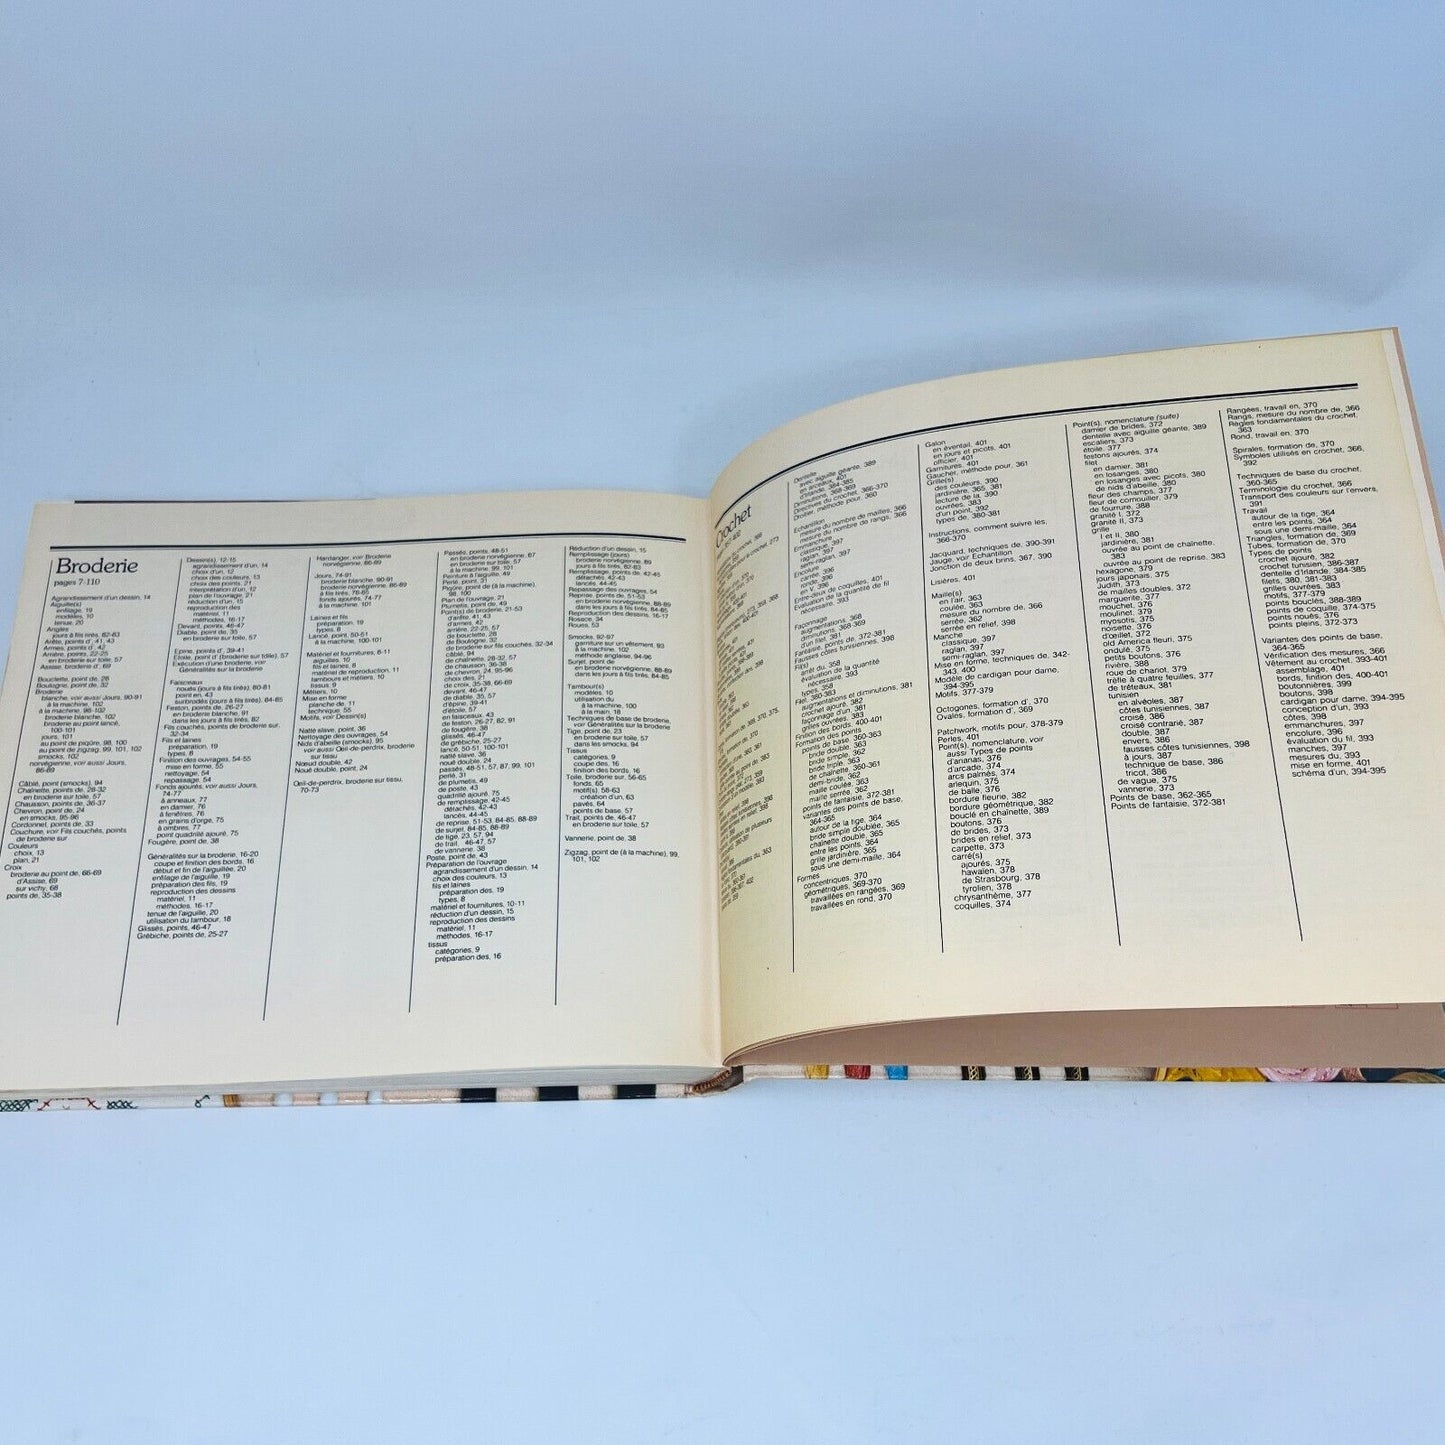 Broderie
pages 7-110
Agrandissement d'un dessin, 14
Aiguille(s)
enfilage, 19
modèles, 10
tenue, 20
Angles
jours à fils tirés, 82-83
Arête, points d', 41, 43
Armes, points d', 42
Arrière, points, 22-25
en broderie sur toile, 57
Assise, broderie d', 69
Bouclette, point de, 28
Boulogne, point de, 32
Broderie
blanche, voir aussi Jours, 90-91
à la machine, 102
à la machine, 98-102
broderie blanche, 102
broderie au point lancé,
100-101
jours, 101
au point de piqûre, 98, 100
au point de zigzag, 99, 101, 102
smocks, 102
norvégienne, voir aussi Jours,
86-89
Câblé, point (smocks), 94
Chaînette, points de, 28-32
en broderie sur toile, 57
Chausson, points de, 36-37
Chevron, point de, 24
en smocks, 95-96
Cordonnet, points de, 33
Couchure, voir Fils couchés, points
de broderie sur
Couleurs
choix, 13
plan, 21
Croix
broderie au point de, 66-69
d'Assise, 69
sur vichy, 68
points de, 35-38
Dessin(s), 12-15
agrandissement d'un, 14
choix d'un, 12
choix des couleurs, 13
choix des points, 21
interprétation d'un, 12
plan de l'ouvrage, 21
réduction d'un, 15
reproduction des
matériel, 11
méthodes, 16-17
Devant, points, 46-47
Diable, point de, 35
en broderie sur toile, 57
Epine, points d', 39-41
Etoile, point d' (broderie sur toile), 57
Exécution d'une broderie, voir
Généralités sur la broderie
Faisceaux
noués (jours à fils tirés), 80-81
point en, 43
surbrodés (jours à fils tirés), 84-85
Feston, points de, 26-27
en broderie blanche, 91
dans les jours à fils tirés, 82
Fils couchés, points de broderie sur,
32-34
Fils et laines
préparation, 19
types, 8
Finition des ouvrages, 54-55
mise en forme, 55
nettoyage, 54
repassage, 54
Fonds ajourés, voir aussi Jours,
74-77
à anneaux, 77
en damier, 76
à fenêtres, 76
en grains d'orge, 75
à ombres, 77
point quadrillé ajouré, 75
Fougère, point de, 38
Généralités sur la broderie, 16-20
coupe et finition des bords, 16
début et fin de l'aiguillée, 20
enfilage de l'aiguille, 19
préparation des fils, 19
reproduction des dessins
matériel, 11
méthodes, 16-17
tenue de l'aiguille, 20
utilisation du tambour, 18
Glissés, points, 46-47
Grébiche, points de, 25-27
Hardanger, voir Broderie
norvégienne, 86-89
Jours, 74-91
broderie blanche, 90-91
broderie norvégienne, 86-89
à fils tirés, 78-85
fonds ajourés, 74-77
à la machine, 101
Laines et fils
préparation, 19
types, 8
Lancé, point, 50-51
à la machine, 100-101
Matériel et fournitures, 8-11
aiguilles, 10
fil et laines, 8
matériel de reproduction, 11
tambours et métiers, 10
tissus, 9
Métiers, 10
Mise en forme
planche de, 11
technique, 55
Motifs, voir Dessin(s)
Natté slave, point, 36
Nettoyage des ouvrages, 54
Nids d'abeille (smocks), 95
voir aussi Œil-de-perdrix, broderie
sur tissu
Nœud double, 42
Noué double, point, 24
Œil-de-perdrix, broderie sur tissu,
70-73
Passés, points, 48-51
en broderie norvégienne, 87
en broderie sur toile, 57
à la machine, 99, 101
Peinture à l'aiguille, 49
Perlé, point, 31
Piqûre, point de (à la machine),
98, 100
Plan de l'ouvrage, 21
Plumetis, point de, 49
Point(s) de broderie, 21-53
d'arête, 41, 43
d'armes, 42
arrière, 22-25, 57
de bouclette, 28
de Boulogne, 32
de broderie sur fils couchés, 32-34
câblé, 94
de chaînette, 28-32, 57
de chausson, 36-38
de chevron, 24, 95-96
choix des, 21
de croix, 35-38, 66-69
devant, 46-47
de diable, 35, 57
d'épine, 39-41
d'étoile, 57
en faisceaux, 43
de feston, 26-27, 82, 91
de fougère, 38
glissés, 46-47
de grébiche, 25-27
lancé, 50-51, 100-101
natté slave, 36
noué double, 24
passés, 48-51, 57, 87, 99, 101
perlé, 31
de plumetis, 49
de poste, 43
quadrillé ajouré, 75
de remplissage, 42-45
détachés, 42-43
lancés, 44-45
de reprise, 51-53, 84-85, 88-89
de surjet, 84-85, 88-89
de tige, 23, 57, 94
de trait, 46-47, 57
de vannerie, 38
Poste, point de, 43
Préparation de l'ouvrage
agrandissement d'un dessin, 14
choix des couleurs, 13
fils et laines
préparation des, 19
types, 8
matériel et fournitures, 10-11
réduction d'un dessin, 15
reproduction des dessins
matériel, 11
méthodes, 16-17
tissus
catégories, 9
préparation des, 16
Réduction d'un dessin, 15
Remplissage (jours)
broderie norvégienne, 89
jours à fils tirés, 82-83
Remplissage, points de, 42-45
détachés, 42-43
lancés, 44-45
Repassage des ouvrages, 54
Reprise, points de, 51-53
en broderie norvégienne, 88-89
dans les jours à fils tirés, 84-85
Reproduction des dessins, 16-17
Rosace, 34
Roues, 53
Smocks, 92-97
garniture sur un vêtement, 93
à la machine, 102
méthode anglaise, 94-96
Surjet, point de
en broderie norvégienne, 88-89
dans les jours à fils tirés, 84-85
Tambour(s)
modèles, 10
utilisation du
à la machine, 100
à la main, 18
Techniques de base de broderie,
voir Généralités sur la broderie
Tige, point de, 23
en broderie sur toile, 57
dans les smocks, 94
Tissus
catégories, 9
coupe des, 16
finition des bords, 16
Toile, broderie sur, 56-65
fonds, 65
motif(s), 58-63
création d'un, 63
pavés, 64
points de base, 57
Trait, points de, 46-47
en broderie sur toile, 57
Vannerie, point de, 38
Zigzag, point de (à la machine), 99,
101, 102
Crochet
Dentelle
avec aiguille géante, 389
en arceaux, 401
d'Irlande, 384-385
Diminutions, 368-369
Directives du crochet, 366-370
Droitier, méthode pour, 360
Echantillon
mesure du nombre de mailles, 366
mesure du nombre de rangs, 366
Emmanchure
classique, 397
raglan, 397
semi-raglan, 397
Encolure
carrée, 396
ronde, 396
en V, 396
Entre-deux de coquilles, 401
Evaluation de la quantité de fil
nécessaire, 393
Façonnage
augmentations, 368
diminutions, 368-369
d'un filet, 381
Fantaisie, points de, 372-381
Fausses côtes tunisiennes, 398
Fil(s)
arrêt du, 358
évaluation de la quantité
nécessaire, 393
types, 358
Filet, 380-383
augmentations et diminutions, 381
crochet ajouré, 382
façonnage d'un, 381
grilles ouvrées, 383
Finition des bords, 400-401
Formation des points
points de base, 360-363
bride double, 363
bride simple, 362
bride triple, 363
de chaînette, 360-361
demi-bride, 362
maille coulée, 363
maille serrée, 362
points de fantaisie, 372-381
variantes des points de base,
364-365
autour de la tige, 364
bride simple doublée, 365
chaînette double, 365
entre les points, 364
grille jardinière, 365
sous une demi-maille, 364
Formes
concentriques, 370
géométriques, 369-370
travaillées en rangées, 369
travaillées en rond, 370
Galon
en éventail, 401
en jours et picots, 401
officier, 401
Garnitures, 401
Gaucher, méthode pour, 361
Grille(s)
des couleurs, 390
jardinière, 365, 381
lecture de la, 390
ouvrées, 383
d'un point, 392
types de, 380-381
Instructions, comment suivre les,
366-370
Jacquard, techniques de, 390-391
Jauge, voir Echantillon
Jonction de deux brins, 367, 390
Lisières, 401
Maille(s)
en l'air, 363
coulée, 363
mesure du nombre de, 366
serrée, 362
serrée en relief, 398
Manche
classique, 397
raglan, 397
semi-raglan, 397
Mise en forme, techniques de, 342-
343, 400
Modèle de cardigan pour dame,
394-395
Motifs, 377-379
Octogones, formation d', 370
Ovales, formation d', 369
Patchwork, motifs pour, 378-379
Perles, 401
Point(s), nomenclature, voir
aussi Types de points
d'ananas, 376
d'arcade, 374
arcs palmés, 374
arlequin, 375
de balle, 376
bordure fleurie, 382
bordure géométrique, 382
bouclé en chaînette, 389
boutons, 376
de brides, 373
brides en relief, 373
carpette, 373
carré(s)
ajourés, 375
hawaïen, 378
de Strasbourg, 378
tyrolien, 378
chrysanthème, 377
coquilles, 374
Point(s), nomenclature (suite)
damier de brides, 372
dentelle avec aiguille géante, 389
escaliers, 373
étoile, 377
festons ajourés, 374
filet
en damier, 381
en losanges, 380
en losanges avec picots, 380
de nids d'abeille, 380
fleur des champs, 377
fleur de cornouiller, 379
de fourrure, 388
granité I, 372
granité II, 373
grille
I et II, 380
jardinière, 381
ouvrée au point de chaînette,
383
ouvrée au point de reprise, 383
hexagone, 379
jours japonais, 375
Judith, 373
de mailles doubles, 372
marguerite, 377
mouchet, 376
moulinet, 379
myosotis, 375
noisette, 376
d'œillet, 372
old America fleuri, 375
ondulé, 375
petits boutons, 376
rivière, 388
roue de chariot, 379
trèfle à quatre feuilles, 377
de tréteaux, 381
tunisien
en alvéoles, 387
côtes tunisiennes, 387
croisé, 386
croisé contrarié, 387
double, 387
envers, 386
fausses côtes tunisiennes, 398
à jours, 387
technique de base, 386
tricot, 386
de vague, 375
vannerie, 373
Points de base, 362-365
Points de fantaisie, 372-381
Rangées, travail en, 370
Rangs, mesure du nombre de, 366
Règles fondamentales du crochet,
363
Rond, travail en, 370
Spirales, formation de, 370
Symboles utilisés en crochet, 366,
392
Techniques de base du crochet,
360-365
Terminologie du crochet, 366
Transport des couleurs sur l'envers,
391
Travail
autour de la tige, 364
entre les points, 364
sous une demi-maille, 364
Triangles, formation de, 369
Tubes, formation de, 370
Types de points
crochet ajouré, 382
crochet tunisien, 386-387
dentelle d'Irlande, 384-385
filets, 380, 381-383
grilles ouvrées, 383
motifs, 377-379
points bouclés, 388-389
points de coquille, 374-375
points noués, 376
points pleins, 372-373
Variantes des points de base,
364-365
Vérification des mesures, 366
Vêtement au crochet, 393-401
assemblage, 401
bords, finition des, 400-401
boutonnières, 399
boutons, 398
cardigan pour dame, 394-395
conception d'un, 393
côtes, 398
emmanchures, 397
encolure, 396
évaluation du fil, 393
manches, 397
mesures du, 393
mise en forme, 401
schéma d'un, 394-395